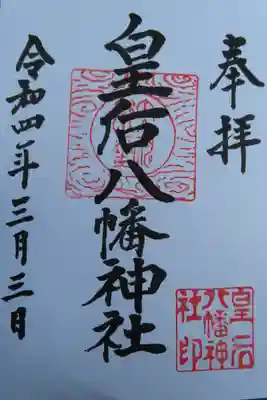 奉拝
皇后八幡神社
皇后
八幡神
社印
令和四年三月三日